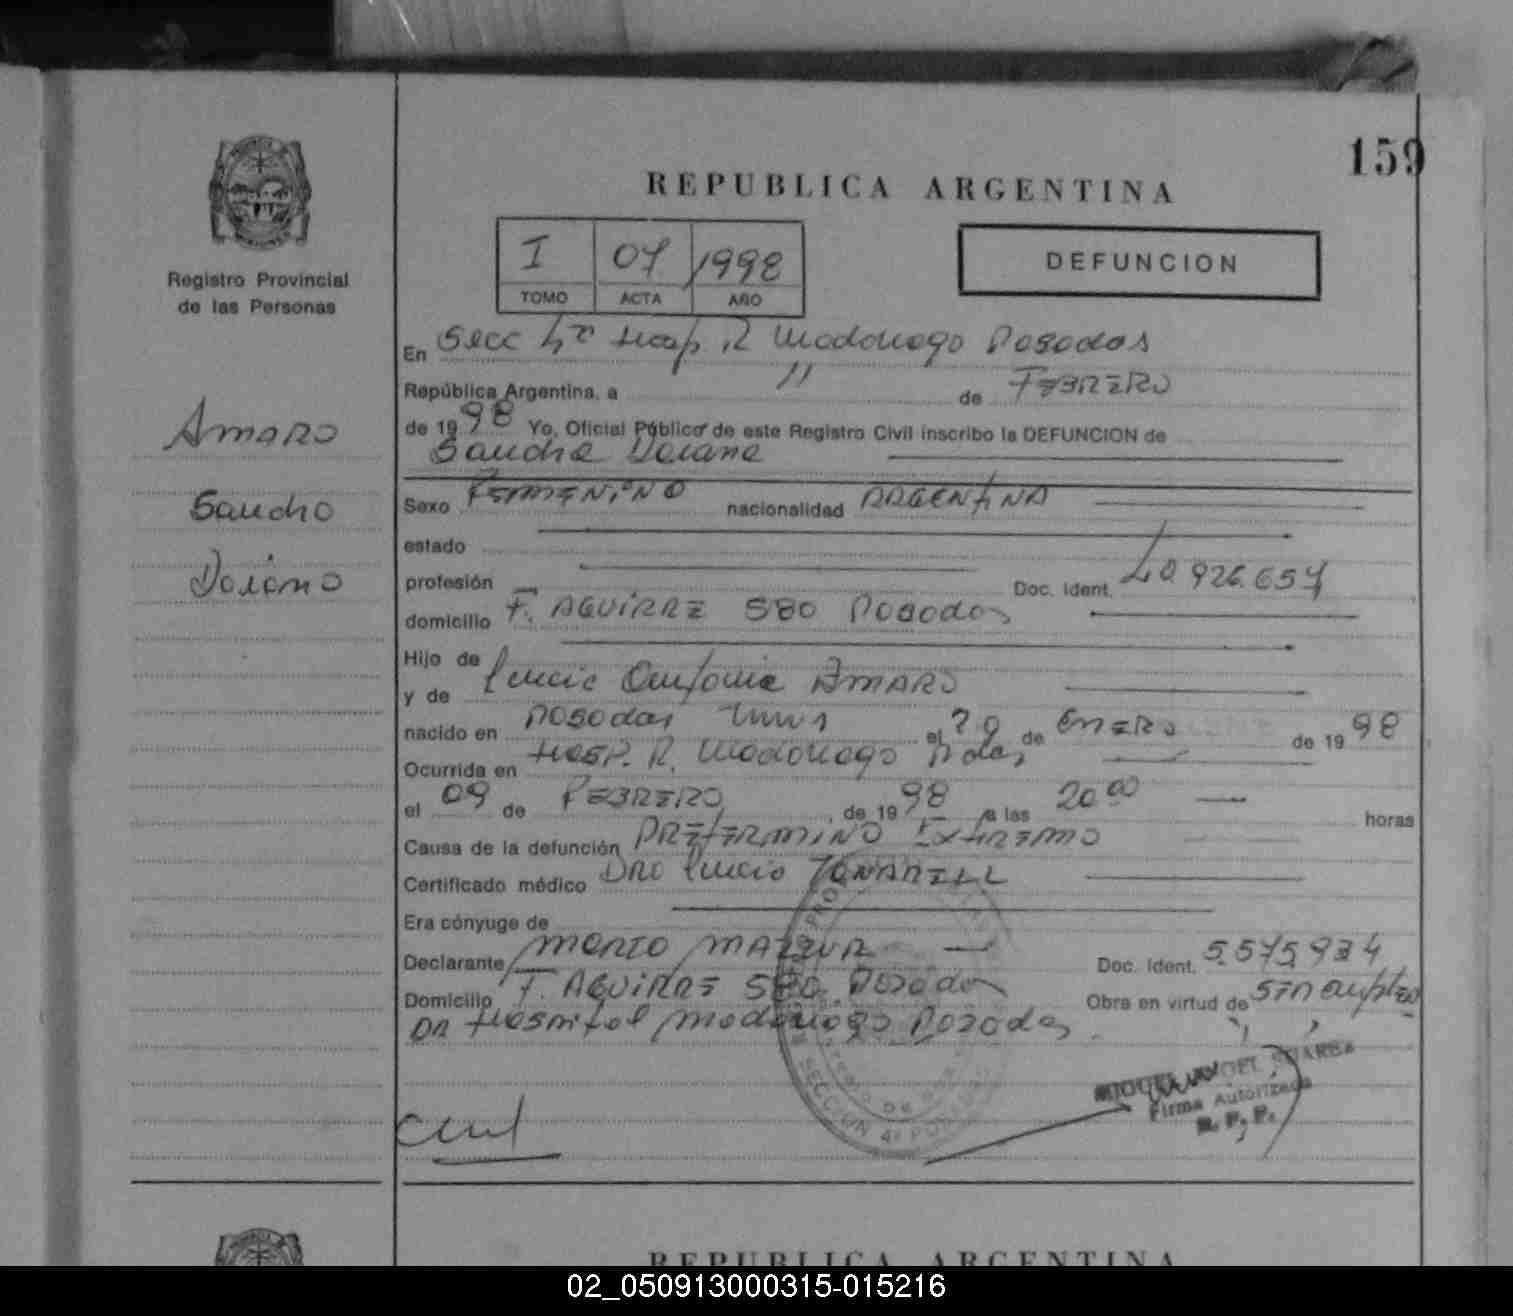 159
REPUBLICA ARGENTINA
Registro Provincial
de las Personas
I 07 1998
TOMO ACTA AÑO
DEFUNCION
En Secc 4ª Hosp. R Madariaga Posadas
República Argentina, a 11 de FEBRERO
de 1998 Yo, Oficial Público de este Registro Civil inscribo la DEFUNCION de
Sandra Daiana
AMARO
Sandra
Daiana
Sexo FEMENINO nacionalidad ARGENTINA
estado
profesión Doc. Ident. 40.926.657
domicilio F. AGUIRRE 580 Posadas
Hijo de
y de Lucia Antonia AMARO
nacido en Posadas Mnes el 29 de ENERO de 1998
Ocurrida en HOSP. R. Madariaga Pdas
el 09 de FEBRERO de 1998 a las 20 00 horas
Causa de la defunción PRETERMINO EXTREMO
Certificado médico DRA Lucia
Era cónyuge de
Declarante MARIO Doc. Ident. 5.575.934
Domicilio F. AGUIRRE 580 Posadas Obra en virtud de ser empleado
DR Hospital Madariaga Posadas
SECCION 4ª POSADAS
MIGUEL ANGEL SUAREZ
Firma Autorizada
R. P. P.
REPUBLICA ARGENTINA
02_050913000315-015216